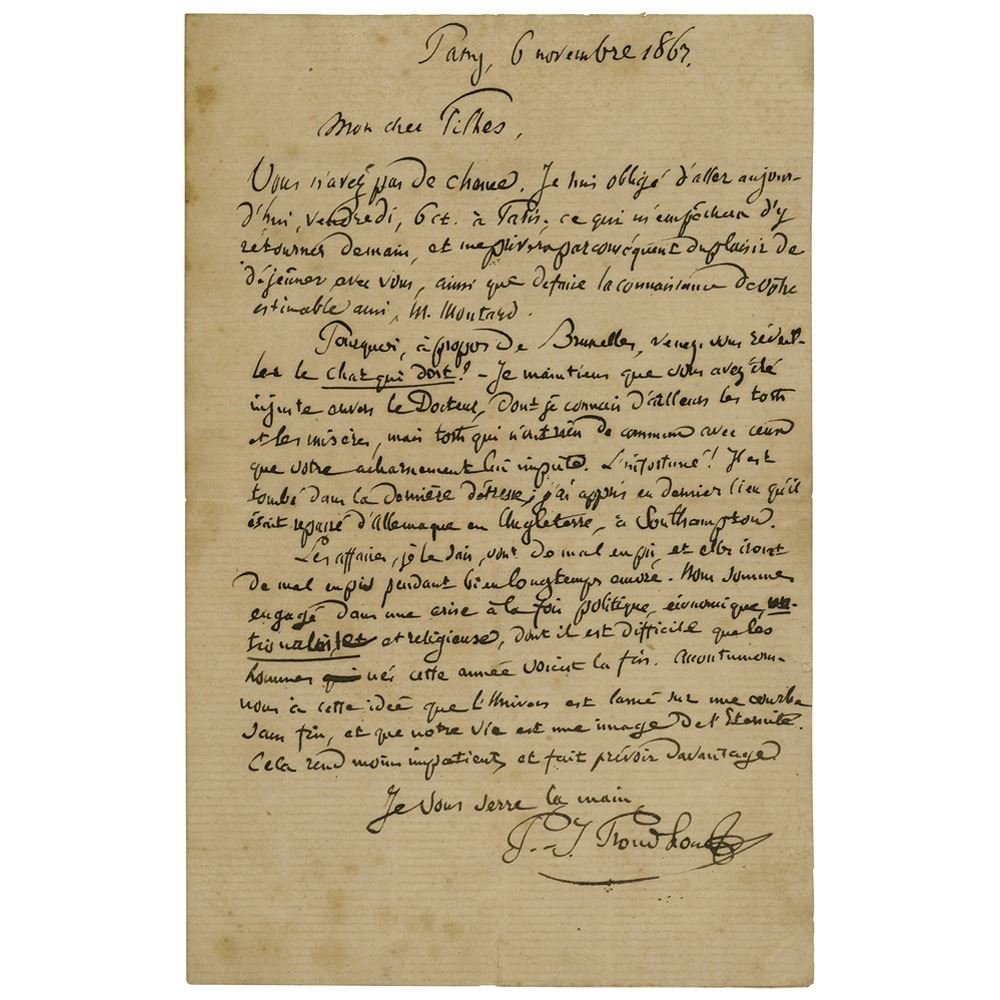 Passy, 6 novembre 1863.
Mon cher Pilhes,
Vous n'avez pas de chance. Je suis obligé d'aller aujour-
d'hui, vendredi, 6 ct. à Paris, ce qui m'empêchera d'y
retourner demain, et me privera par conséquent du plaisir de
déjeûner avec vous, ainsi que de faire la connaissance de votre
estimable ami, M. Moutard.
Pourquoi, à propos de Bruxelles, venez-vous réveil-
ler le chat qui dort? - Je maintiens que vous avez été
injuste envers le Docteur, dont je connais d'ailleurs les torts
et les misères, mais torts qui n'ont rien de commun avec ceux
que votre acharnement lui impute. L'infortuné! Il est
tombé dans la dernière détresse; j'ai appris en dernier lieu qu'il
était repassé d'Allemagne en Angleterre, à Southampton.
Les affaires, je le sais, vont de mal en pis, et elles iront
de mal en pis pendant bien longtemps encore. Nous sommes
engagé dans une crise à la fois politique, économique,
et religieuse, dont il est difficile que les
hommes nés cette année voient la fin. Accoutumons-
nous à cette idée que l'Univers est lancé sur une courbe
sans fin, et que notre vie est une image de l'Eternité.
Cela rend moins impatient, et fait prévoir davantage
Je vous serre la main,
P.-J. Proudhon